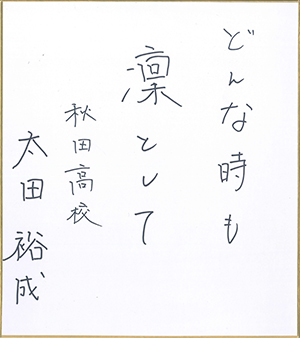 どんな時も
凛として
秋田高校
太田裕成